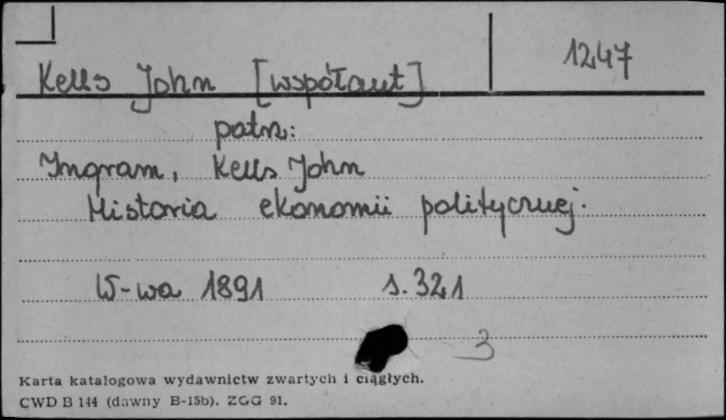 1247
Kells John [współaut]
patrz:
Ingram, Kells John
Historia ekonomii politycznej.
W-wa 1891 s. 321
3
Karta katalogowa wydawnictw zwartych i ciągłych.
CWD B 144 (dawny B-15b). ZGG 91.